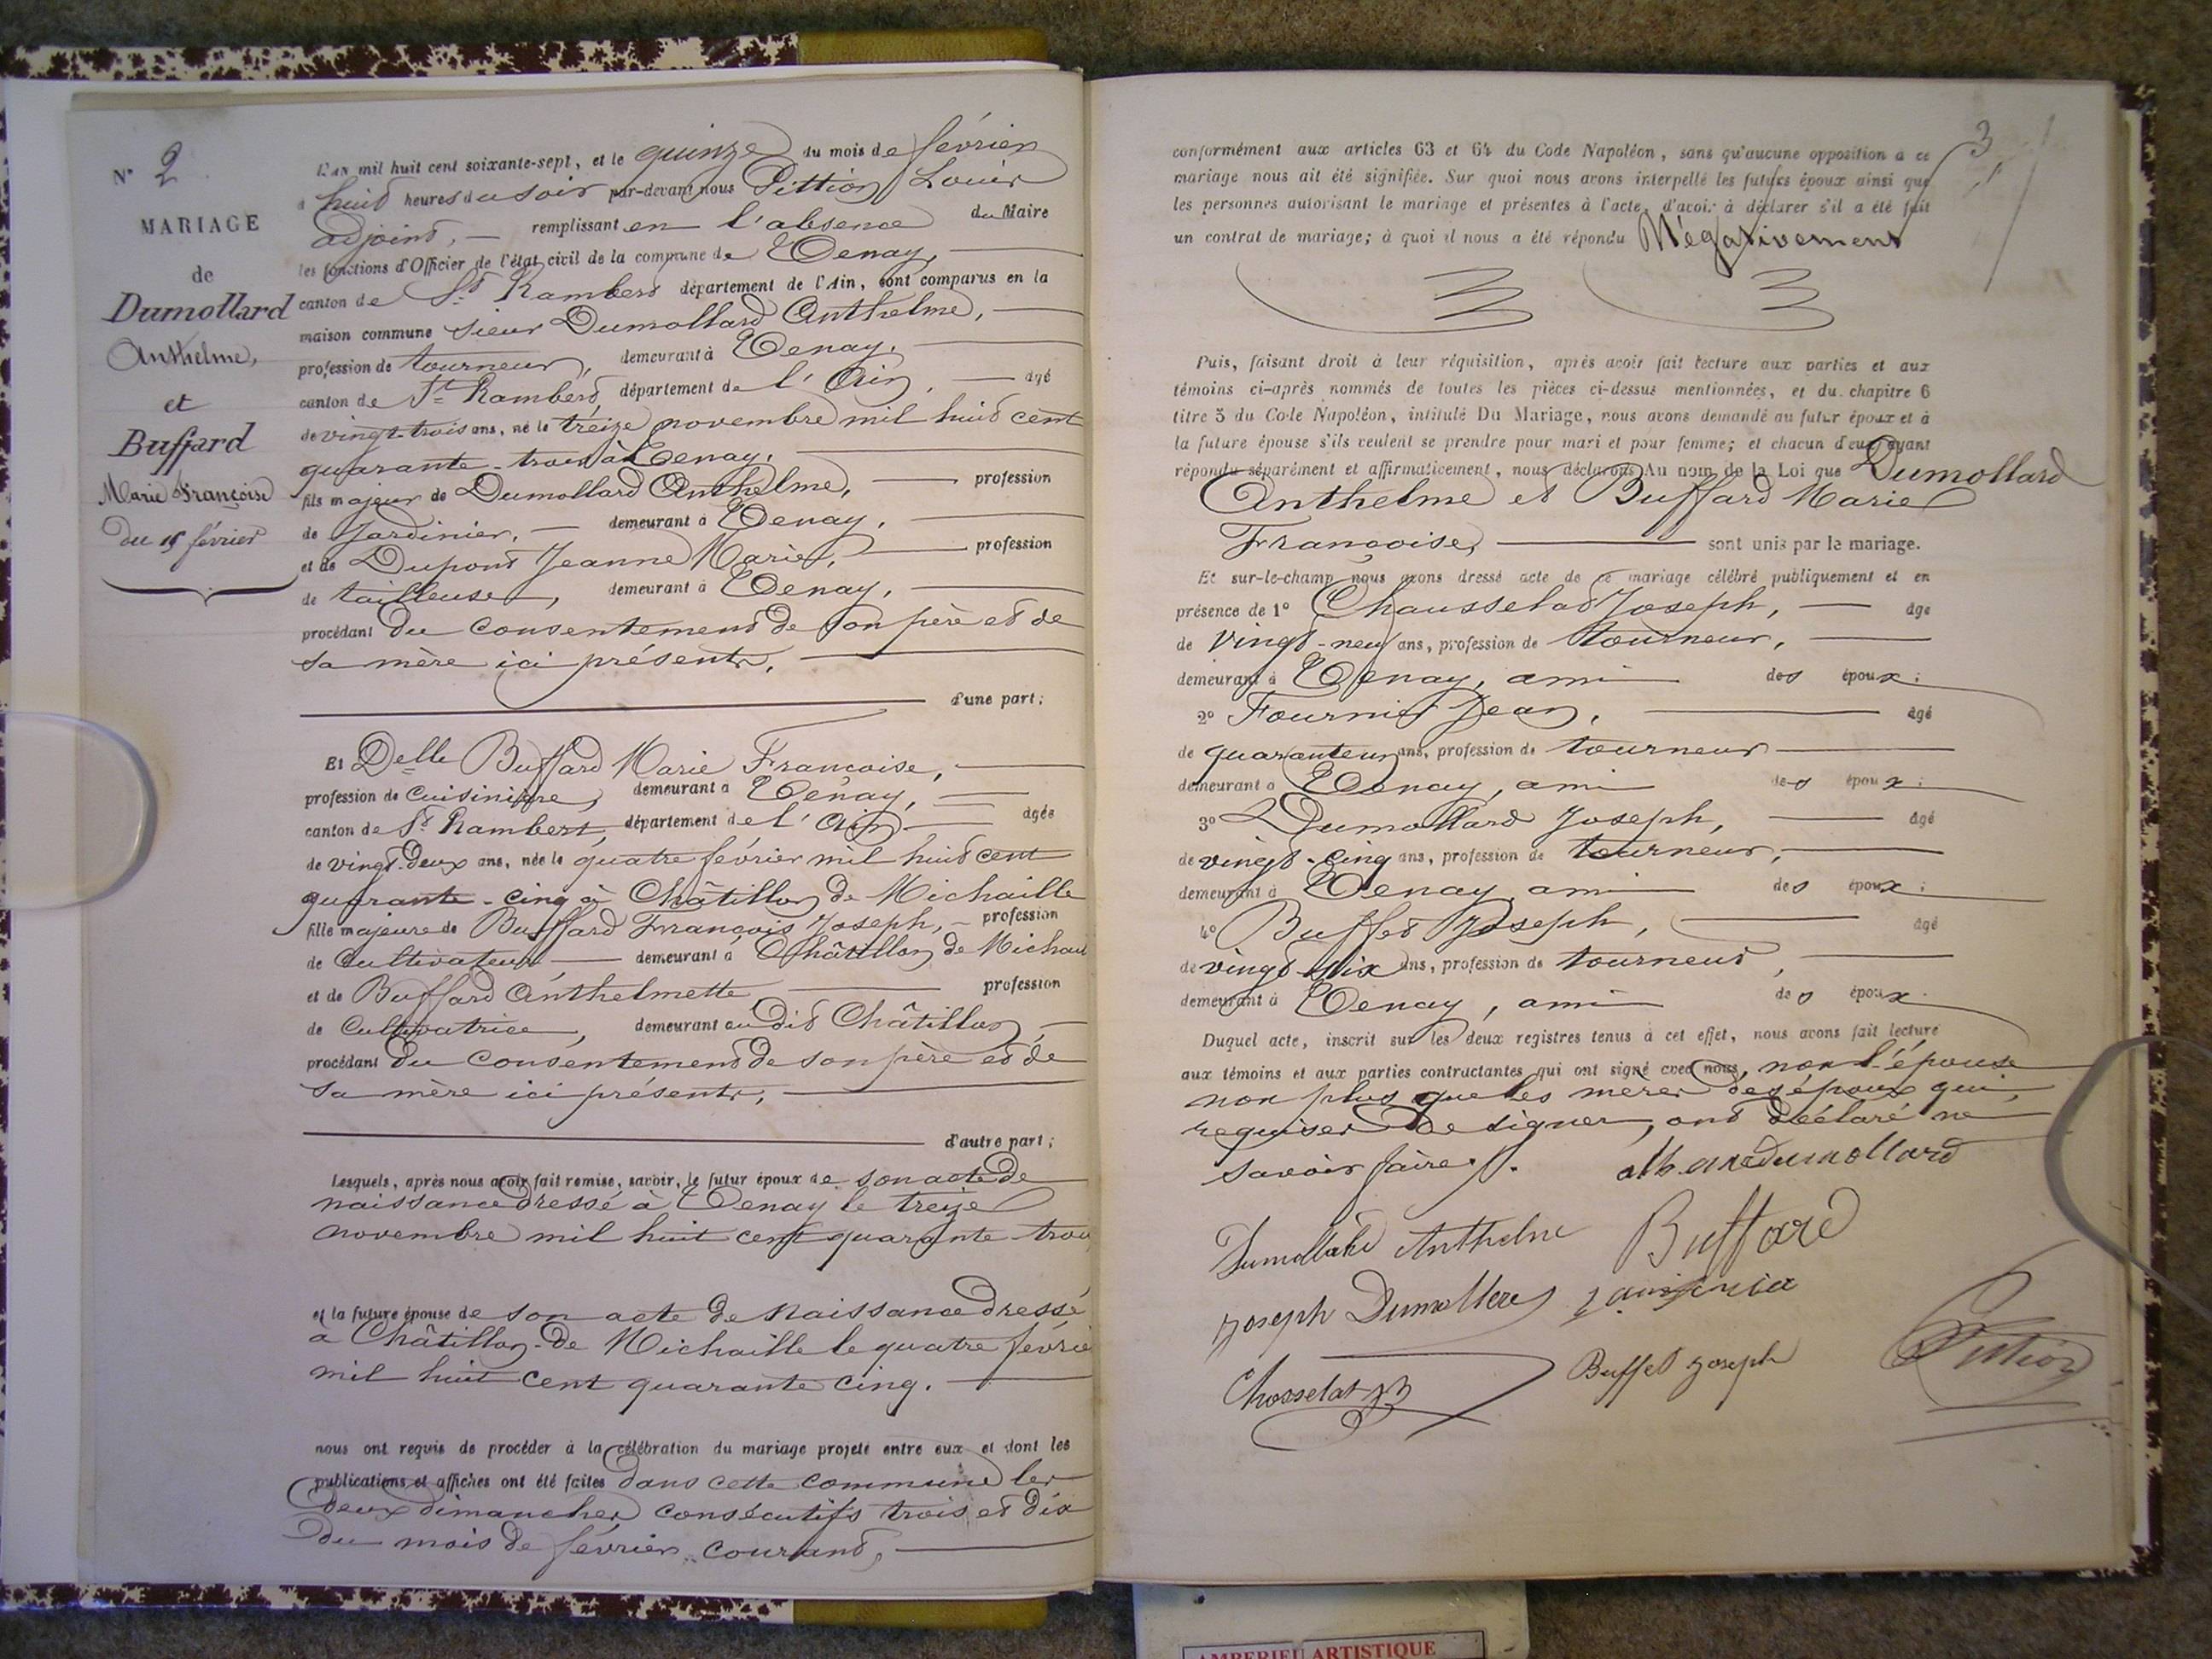 N° 2
MARIAGE
de
Dumollard
Anthelme,
et
Buffard
Marie Françoise
du 15 février
L'an mil huit cent soixante-sept, et le quinze du mois de février
à huit heures du soir par-devant nous Pittion Louis
adjoint, remplissant en l'absence du Maire
les fonctions d'Officier de l'état civil de la commune de Tenay,
canton de St Rambert département de l'Ain, sont comparus en la
maison commune sieur Dumollard Anthelme,
profession de tourneur, demeurant à Tenay,
canton de St Rambert, département de l'Ain, âgé
de vingt-trois ans, né le treize novembre mil huit cent
quarante-trois à Tenay,
fils majeur de Dumollard Anthelme, profession
de Jardinier, demeurant à Tenay,
et de Dupont Jeanne Marie, profession
de tailleuse, demeurant à Tenay,
procédant du consentement de son père et de
sa mère ici présents,
d'une part;
Et Delle Buffard Marie Françoise,
profession de cuisinière, demeurant à Tenay,
canton de St Rambert, département de l'Ain âgée
de vingt-deux ans, née le quatre février mil huit cent
quarante-cinq à Châtillon de Michaille
fille majeure de Buffard François Joseph, profession
de Cultivateur demeurant à Châtillon de Michail
et de Buffard Anthelmette profession
de Cultivatrice, demeurant au dit Châtillon,
procédant du consentement de son père et de
sa mère ici présents,
d'autre part;
Lesquels, après nous avoir fait remise, savoir, le futur époux de son acte de
naissance dressé à Tenay le treize
novembre mil huit cent quarante trois
et la future épouse de son acte de naissance dressé
à Châtillon-de Michaille le quatre févrie
mil huit cent quarante cinq.
nous ont requis de procéder à la célébration du mariage projeté entre eux et dont les
publications et affiches ont été faites dans cette commune les
deux dimanches consécutifs trois et dix
du mois de février courant,
3
conformément aux articles 63 et 64 du Code Napoléon, sans qu'aucune opposition à ce
mariage nous ait été signifiée. Sur quoi nous avons interpellé les futurs époux ainsi que
les personnes autorisant le mariage et présentes à l'acte, d'avoir à déclarer s'il a été fait
un contrat de mariage; à quoi il nous a été répondu Négativement
Puis, faisant droit à leur réquisition, après avoir fait lecture aux parties et aux
témoins ci-après nommés de toutes les pièces ci-dessus mentionnées, et du chapitre 6
titre 5 du Code Napoléon, intitulé Du Mariage, nous avons demandé au futur époux et à
la future épouse s'ils veulent se prendre pour mari et pour femme; et chacun d'eux ayant
répondu séparément et affirmativement, nous déclarons Au nom de la Loi que Dumollard
Anthelme et Buffard Marie
Françoise, sont unis par le mariage.
Et sur-le-champ nous avons dressé acte de ce mariage célébré publiquement et en
présence de 1° Chausselat Joseph, âgé
de vingt-neuf ans, profession de tourneur,
demeurant à Tenay, ami des époux;
2° Fournier Jean, âgé
de quarante un ans, profession de tourneur
demeurant à Tenay, ami des époux;
3° Dumollard Joseph, âgé
de vingt-cinq ans, profession de tourneur,
demeurant à Tenay, ami des époux;
4° Buffet Joseph, âgé
de vingt-six ans, profession de tourneur,
demeurant à Tenay, ami des époux.
Duquel acte, inscrit sur les deux registres tenus à cet effet, nous avons fait lecture
aux témoins et aux parties contractantes qui ont signé avec nous, non l'épouse
non plus que les mères des époux qui,
requises de signer, ont déclaré ne
savoir faire.
Dumollard
Dumollard Anthelme Buffard
Joseph Dumollard
Chosselat Buffet Joseph Pittion
AMBERIEU ARTISTIQUE